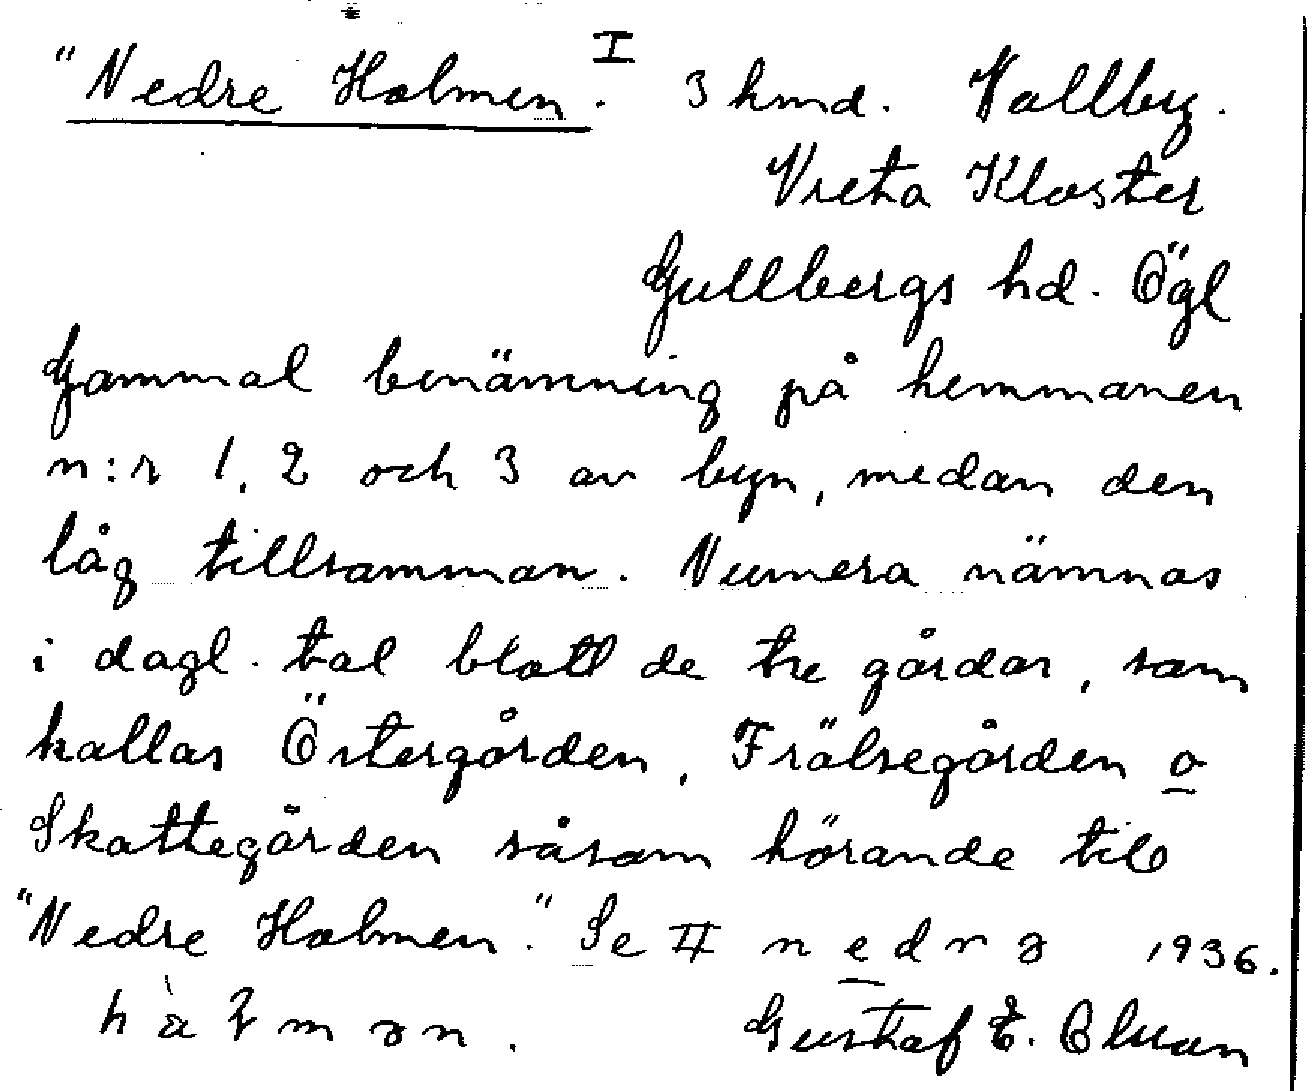 "Nedre Holmen. I 3 hmd. Vallby.
Vreta Kloster
Gullbergs hd. Ögl
Gammal benämning på hemmanen
n:r 1, 2 och 3 av byn, medan den
låg tillsamman. Numera nämnas
i dagl. tal blott de tre gårdar, som
kallas Östergården, Frälsegården o
Skattegården såsom hörande till
"Nedre Holmen." Se II nedrə 1936.
Gustaf E.